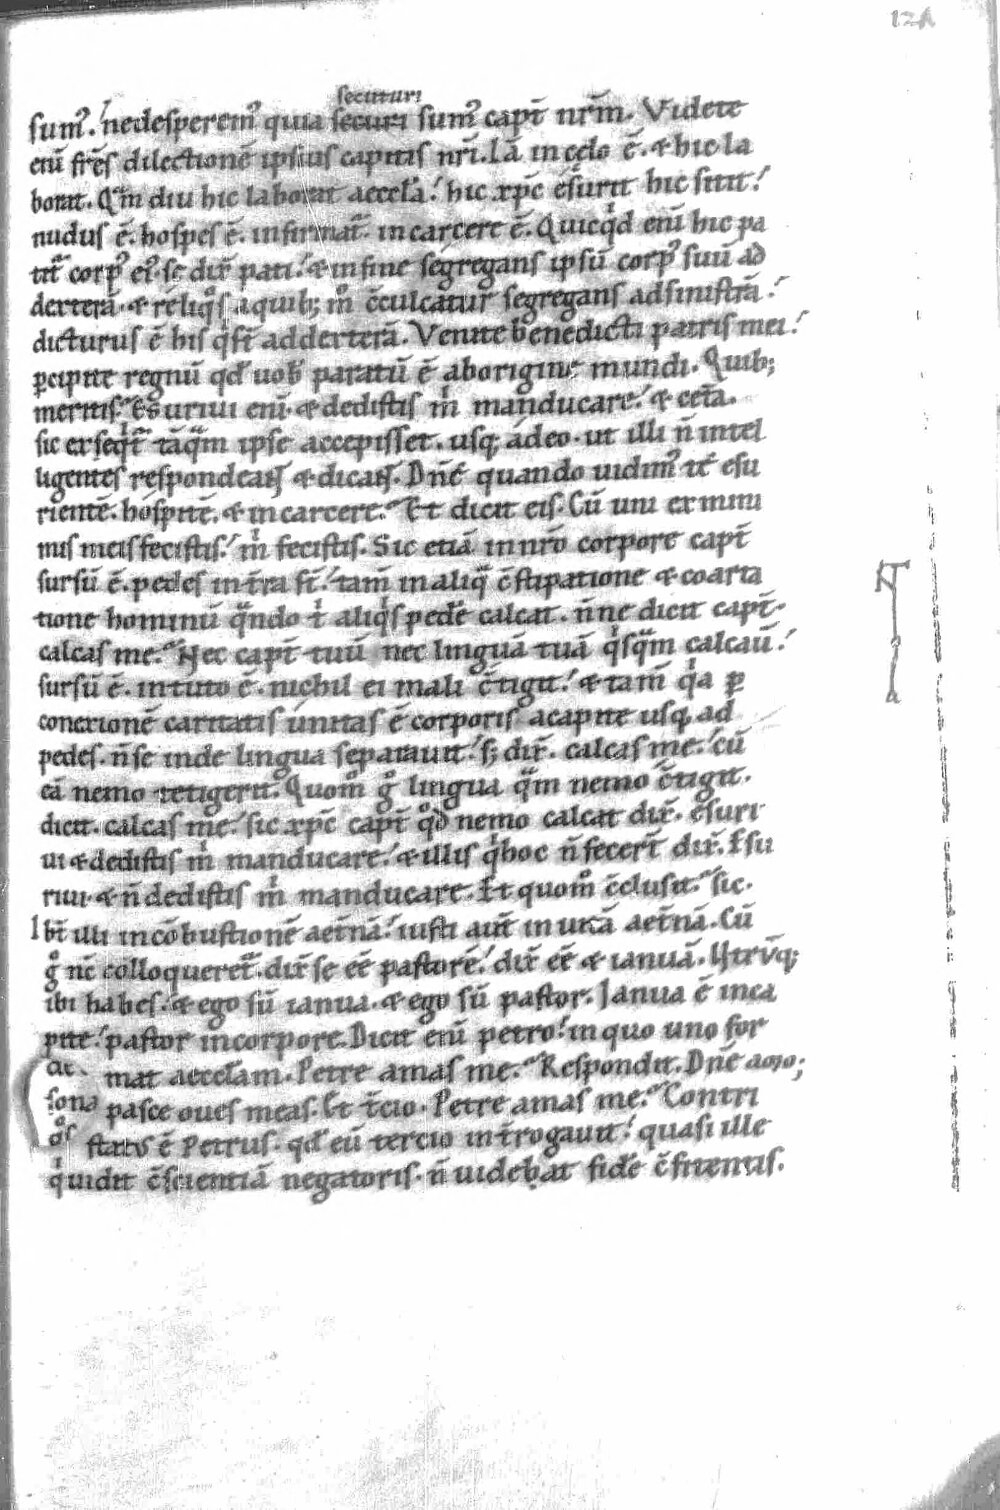 12A
secuturi
sumꝰ. nedesperemꝰ quia securi sumꝰ capt̄ nr̄m. Videte
eni᷑ fr̄es dilectionē ipsius capitis nr̄i. Iā in celo ē. & hic la
borat. Qm̄ diu hic laborat aeccl̄a. hic xp̄c esurit hic sitit.
nudus ē. hospes ē. infirmat᷑. in carcere ē. Quicqͥd enī hic pa
tit᷑ corpꝰ eiꝰ. se dix̄ pati. & in fine segregans ipsū corpꝰ suū ad
dexterā. & reliqͦs a quibꝫ m̊ c̄culcatur segregans ad sinistrā.
dicturus ē his qͥ st̄ ad dexterā. Venite benedicti patris mei.
ꝑcipite regnū qd̄ uob̄ paratū ē ab origine mundi. Quibꝫ
meritis. Esuriui enī. & dedistis mͥ manducare. & cet̄a.
sic exseqͥt᷑ tāqᷓm ipse accepisset. usqꝫ adeo. ut illi n̄ intel
ligentes respondeant & dicant. Dn̄e quando uidimꝰ te esu
rientē. hospitē. & in carcere. Et dicit eis. Cū uni ex mini
mis meis fecistis. mͥ fecistis. Sic etiā in nr̄o corpore capt̄
sursū ē. pedes in t̄ra st̄. tam̄ in aliqᷓ c̄stipatione & coarta
tione hominū qᷓndo tͥ aliqͥs pedē calcat. n̄ne dicit capt̄.
calcas me. Nec capt̄ tuū nec linguā tuā qͥsqᷓm calcau̅.
sursū ē. in tuto ē. nichil ei mali c̄tigit. & tam̄ qͥa ꝑ
conexionē caritatis unitas ē corporis a capite usqꝫ ad
pedes. n̄ se inde lingua separauit. sꝫ dix̄. calcas me. cū
eā nemo tetigerit. Quom̊ gͦ lingua qᷓm nemo c̄tigit.
dicit. calcas me. sic xp̄c capt̄ qͦd nemo calcat dix̄. esuri
ui & dedistis mͥ manducare. & illis qͥ hoc n̄ fecert̄ dix̄. Esu
riui. & n̄ dedistis mͥ manducare. Et quom̊ c̄clusit. sic.
Ibt̄ illi in cōbustionē aet̄nā. iusti aut̄ in uitā aet̄nā. Cū
gͦ nc̄ colloqueret᷑. dix̄ se eē pastorē. dix̄ eē & ianuā. Utrūqꝫ
ibi habes. & ego sū ianua. & ego sū pastor. Ianua ē in ca
pite. pastor in corpore. Dicit enī petro. in quo uno for
mat aeccl̄am. Petre amas me. Respondit. Dn̄e amo;
pasce oues meas. Et t̄cio. Petre amas me. Contri
status ē Petrus. qd̄ eū tercio int̄rogauit. quasi ille
qͥ uidit c̄scientiā negatoris. n̄ uidebat fidē c̄fitentis.